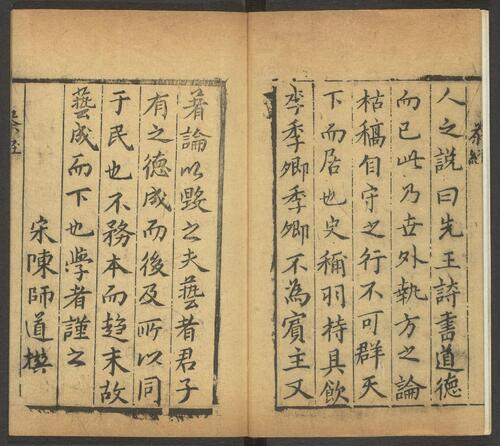 人之說曰先王詩書道德
而已此乃世外執方之論
枯稿自守之行不可群天
下而居也史稱羽持具飲
李季卿季卿不為賓主又
著論以毀之夫藝者君子
有之德成而後及所以同
于民也不務本而趨末故
藝成而下也學者謹之
宋陳師道撰